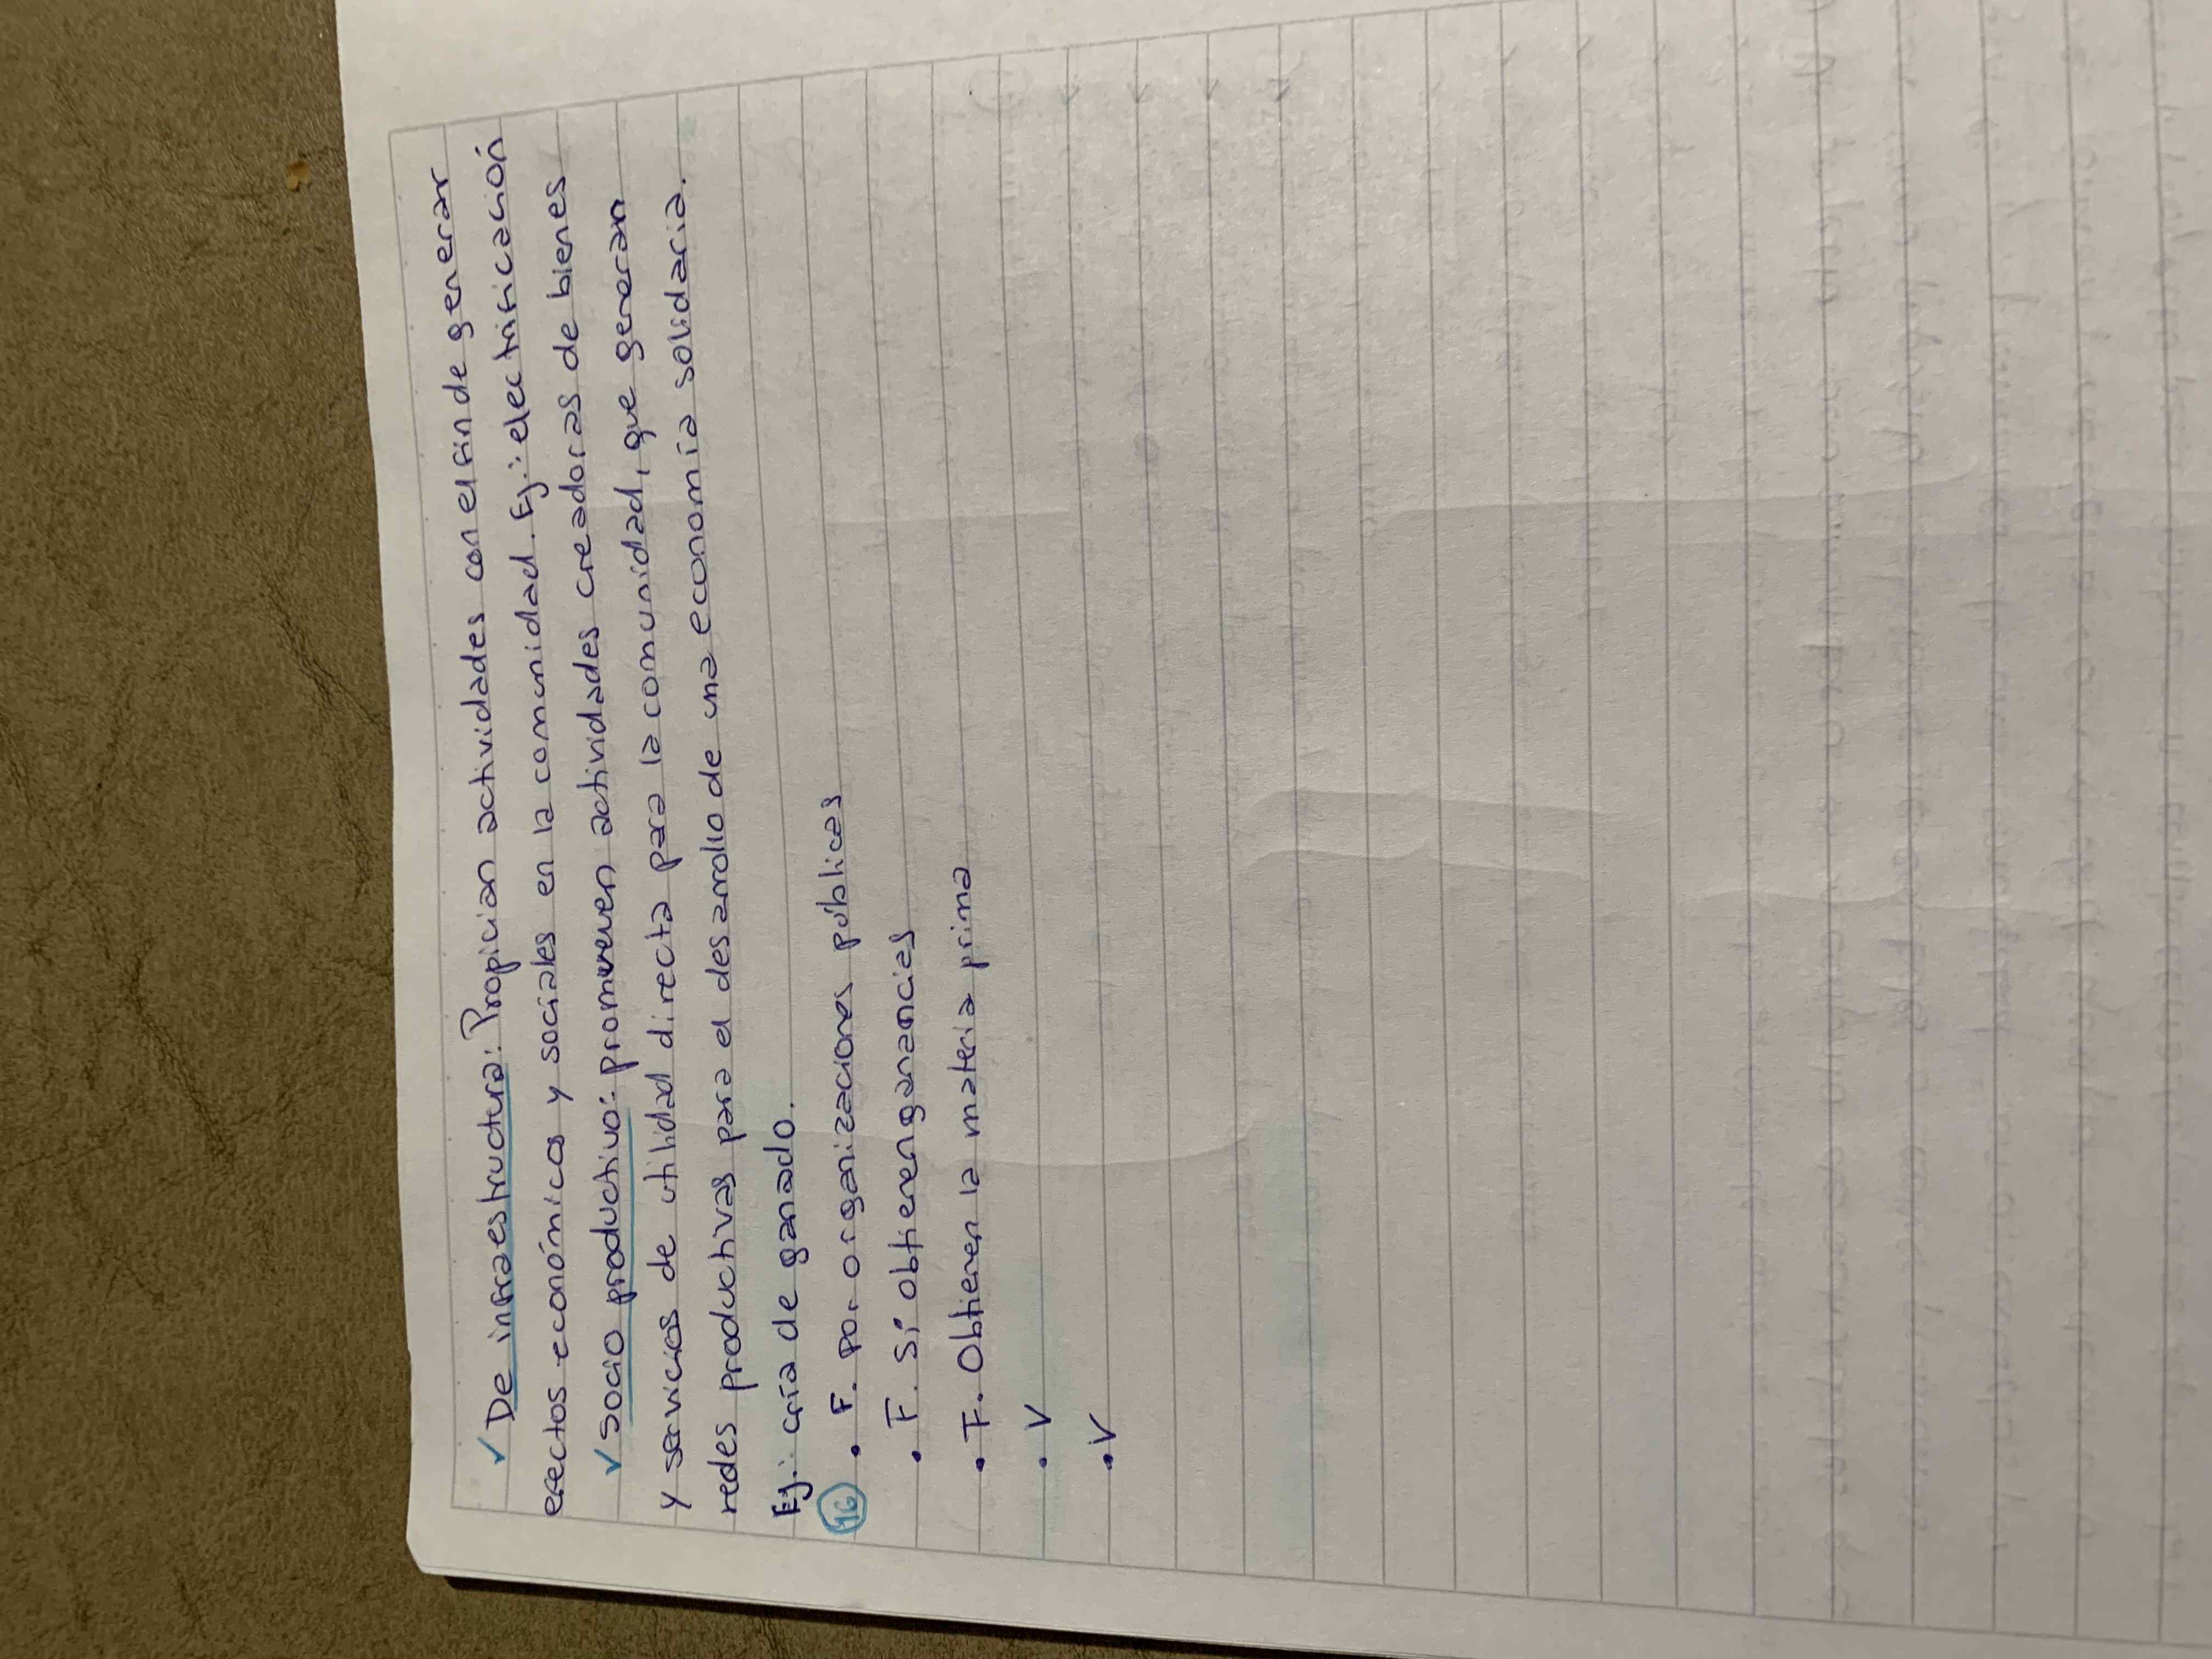 ✓ De infraestructura: Propician actividades con el fin de generar
efectos económicos y sociales en la comunidad. Ej.: electrificación
✓ Socio productivo: promueven actividades creadoras de bienes
y servicios de utilidad directa para la comunidad, que generan
redes productivas para el desarrollo de una economía solidaria.
Ej.: cría de ganado.
16 • F. por organizaciones públicas
• F. Sí obtienen ganancias
• F. Obtienen la materia prima
• V
• V